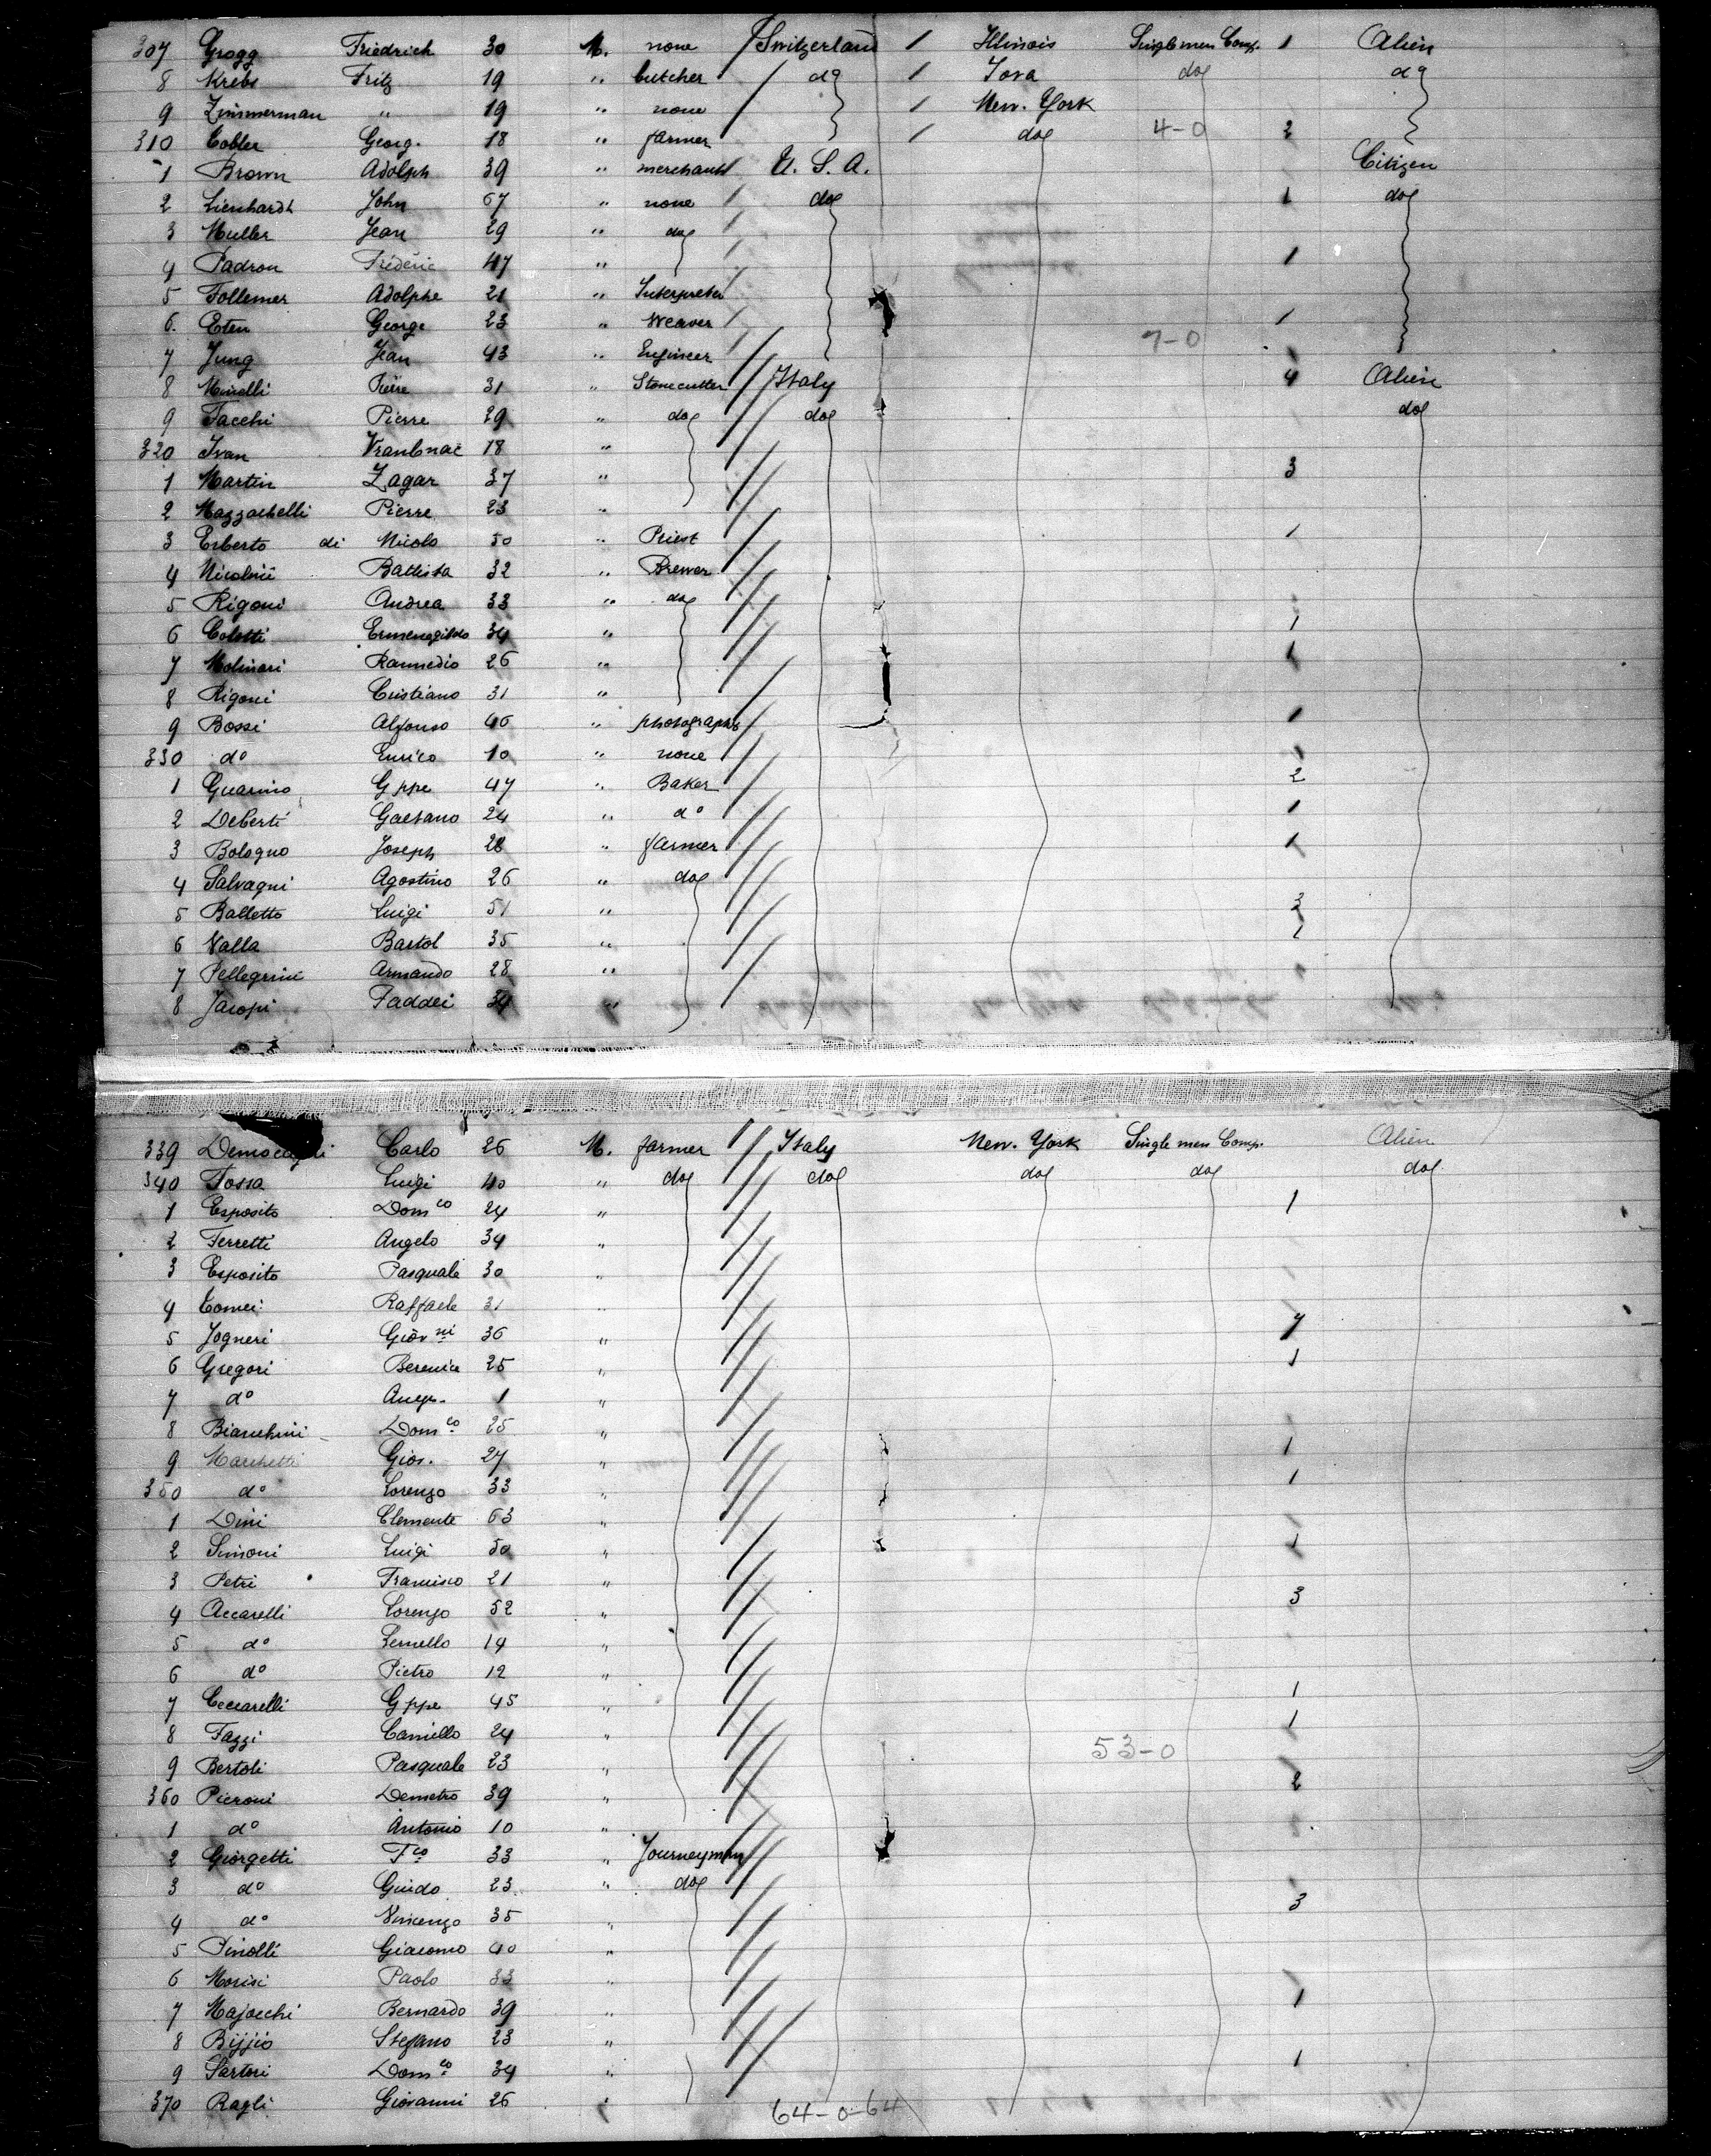 307 Grogg Friedrich 30 M. none Switzerland 1 Illinois Single men Comp. 1 Alien
8 Krebs Fritz 19 " butcher do 1 Iova do do
9 Zimmerman " 19 " none 1 New. York
310 Tobler Georg. 18 " farmer 1 do 4-0 2
1 Brown Adolph 39 " merchant U. S. A. Citizen
2 Lienhardt John 67 " none do 1 do
3 Muller Jean 29 " do
4 Padron Frédéric 47 " 1
5 Follemer Adolphe 21 " Interpreter
6. Eten George 23 " Weaver 1
7 Jung Jean 43 " Engineer 7-0
8 Minelli Pierre 31 " Stonecutter Italy 4 Alien
9 Facchi Pierre 29 " do do do
320 Ivan 18 "
1 Martin Zagar 37 " 3
2 Mazzachelli Pierre 23 "
3 Erberto di Nicolo 50 " Priest 1
4 Battista 32 " Brewer
5 Rigoni Andrea 33 " do
6 Colotti Ermenegildo 34 " 1
7 Molinari Rammedio 26 " 1
8 Rigoni Cristiano 31 "
9 Bossi Alfonso 46 " photograph 1
330 do Enrico 10 " none
1 Guarino Gppe 47 " Baker 2
2 Deberti Gaetano 24 " do 1
3 Bologno Joseph 28 " farmer 1
4 Salvagni Agostino 26 " do
5 Balletto Luigi 51 " 3
6 Valla Bartol 35 " 1
7 Pellegrini Armando 28 "
8 Jacopi Taddei 34 "
339 Carlo 26 M. farmer Italy New. York Single men Comp. Alien
340 Fossa Luigi 40 " do do do do do
1 Esposito Dom co 24 " 1
2 Ferretti Angelo 34 "
3 Esposito Pasquale 30 "
4 Tomei Raffaele 31 "
5 Jogneri Giov ni 36 " 7
6 Gregori Berenice 25 " 1
7 do 1 "
8 Bianchini Dom co 25 "
9 Marchetti Gios. 27 " 1
350 do Lorenzo 33 " 1
1 Dini Clemente 63 "
2 Simoni Luigi 50 " 1
3 Petri Francisco 21 "
4 Accarelli Lorenzo 52 " 3
5 do 14 "
6 do Pietro 12 "
7 Ceccarelli Gppe 45 " 1
8 Fazzi Camillo 24 " 1
9 Bertoli Pasquale 23 " 53-0
360 Pieroni Demetro 39 " 2
1 do Antonio 10 "
2 Giorgetti Fco 33 " Journeyman
3 do Guido 23 " do
4 do Vincenzo 35 " 3
5 Pinolli Giacomo 40 "
6 Morisi Paolo 33 "
7 Majocchi Bernardo 39 " 1
8 Bijjio Stefano 23 "
9 Sartori Dom co 34 " 1
370 Ragli Giovanni 26 "
64-0-64